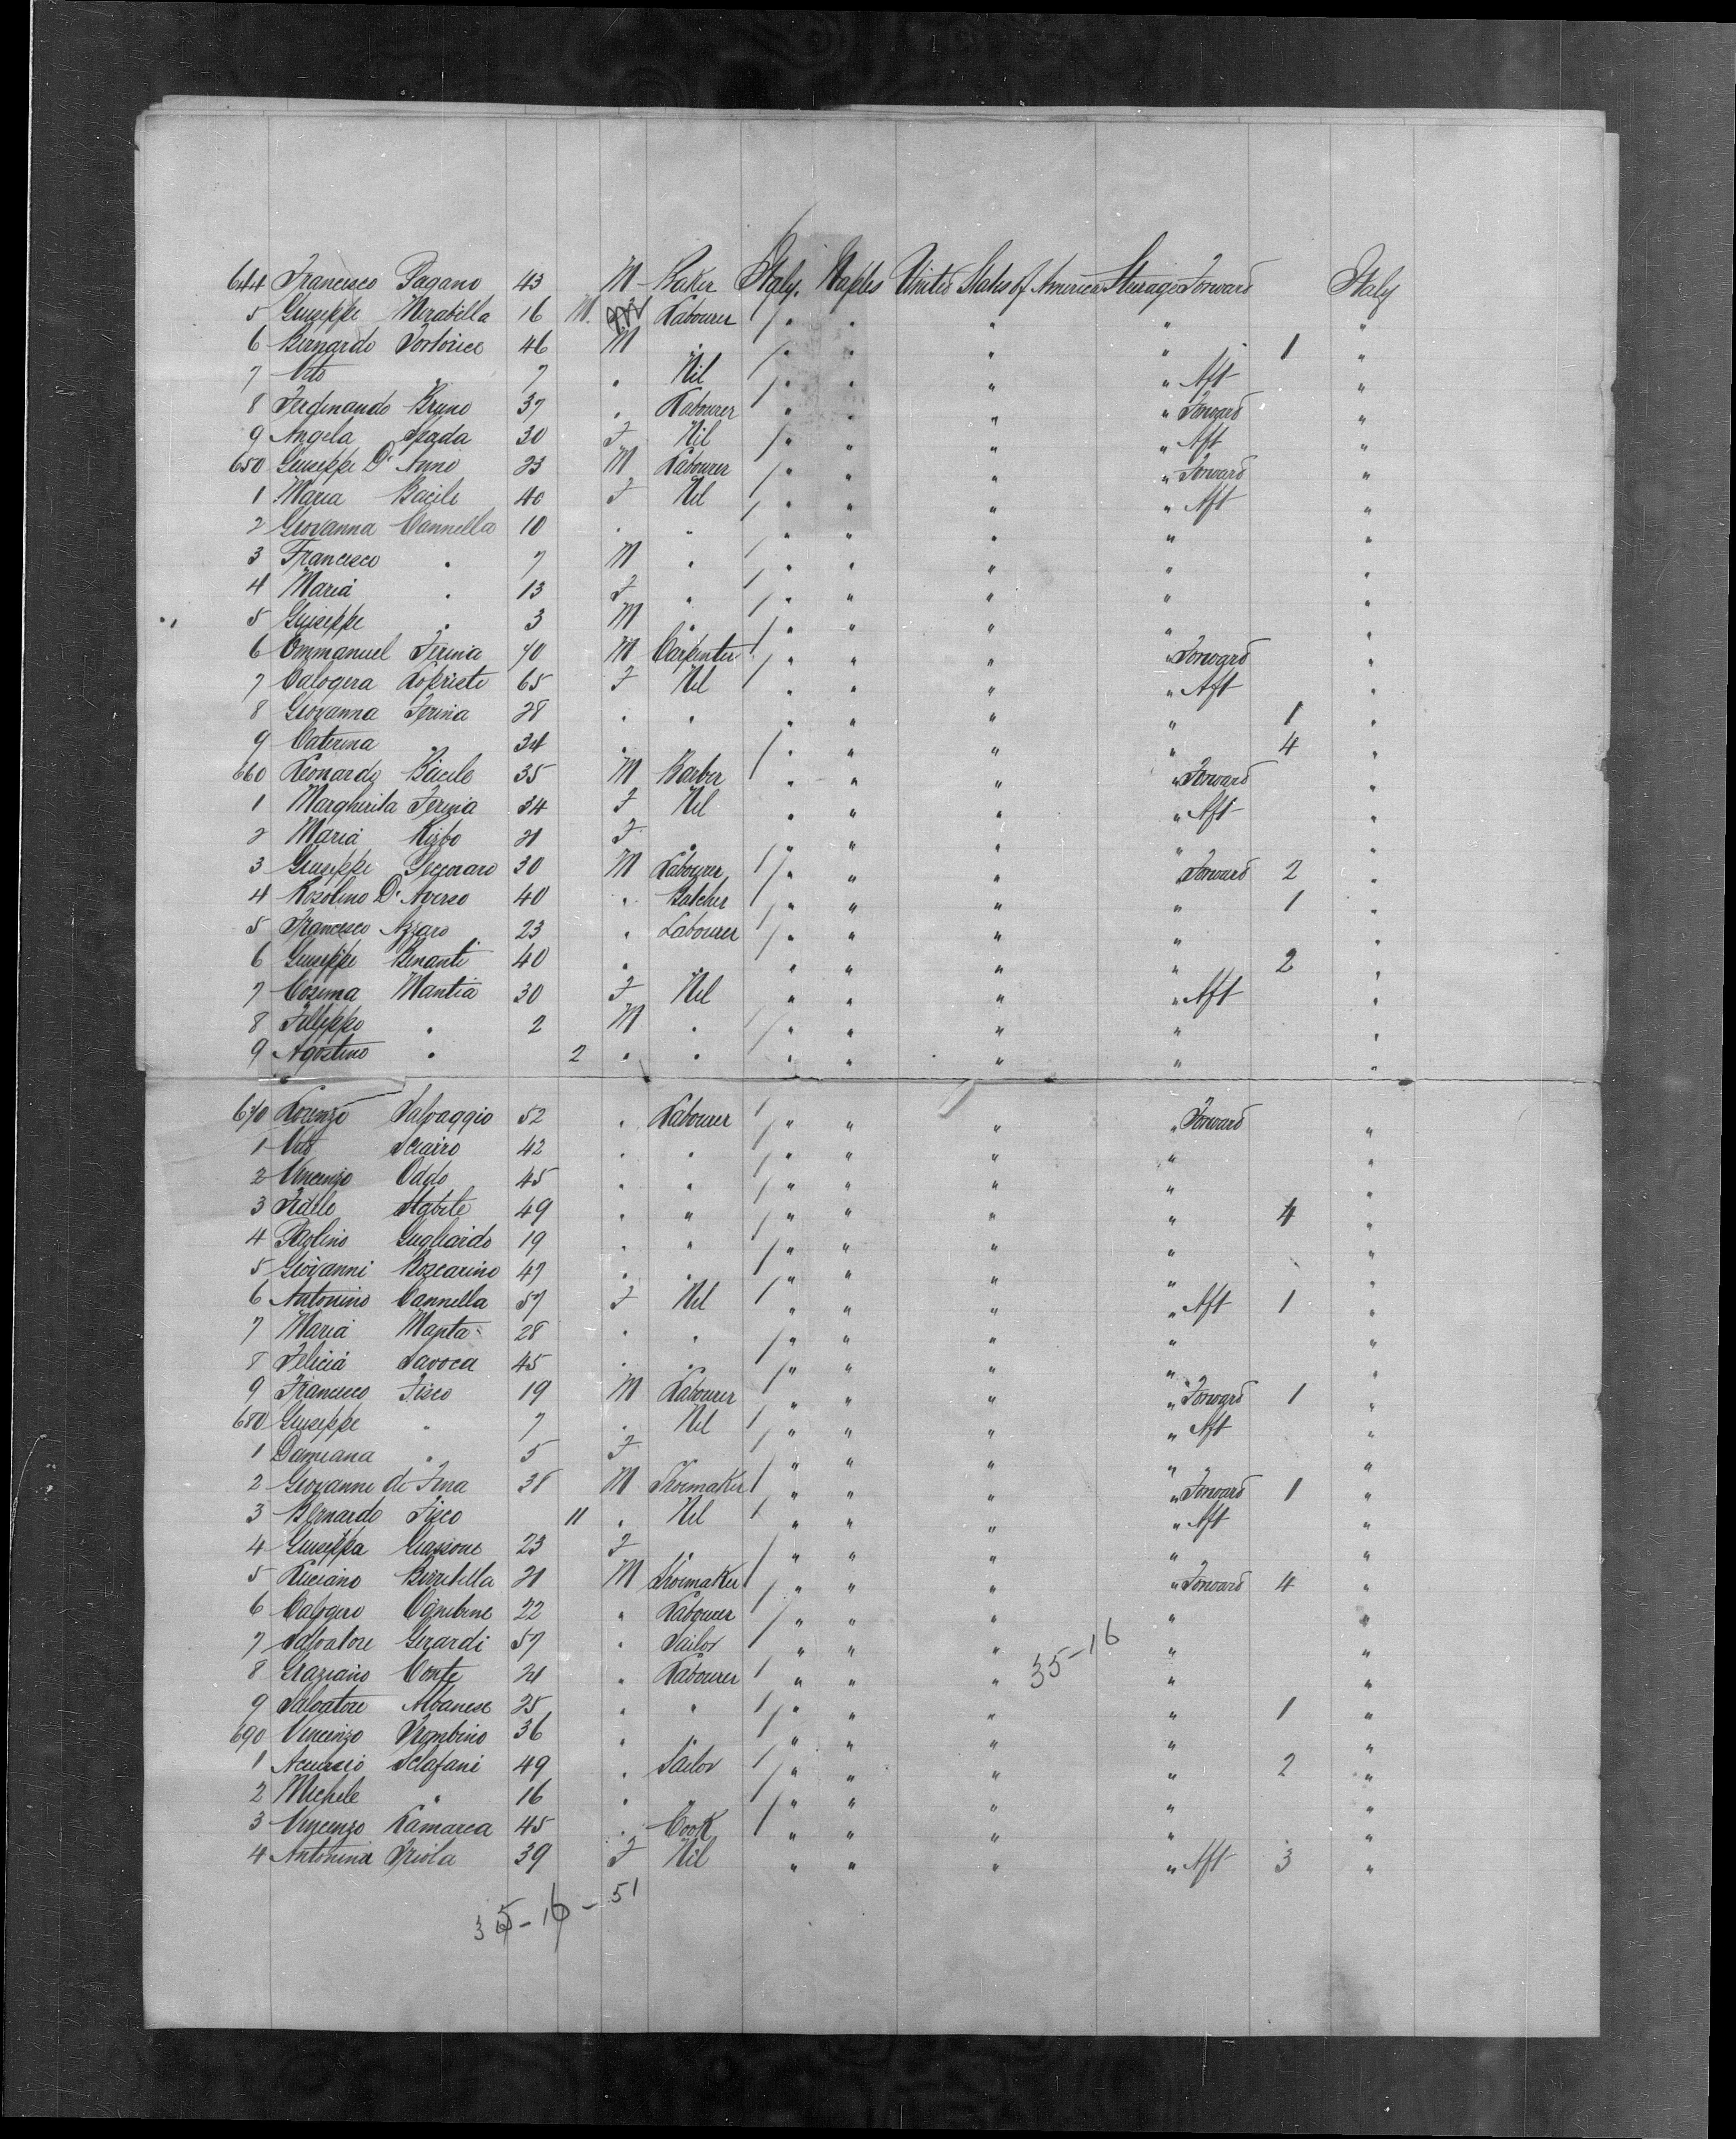 644 Francesco Pagano 43 M Baker Italy. Naples United States of America Steerage Forward Italy
5 Giuseppe Mirabella 16 M. Labourer / " " " " "
6 Bernardo Tortorice 46 M " / " " " " 1 "
7 Vito " 7 " Nil / " " " " Aft "
8 Ferdinando Bruno 37 " Labourer " " " " Forward "
9 Angela Spada 30 F Nil / " " " " Aft "
650 Giuseppe D' Anno 23 M Labourer / " " " " Forward "
1 Maria Bacile 40 F Nil / " " " " Aft "
2 Giovanna Cannella 10 " " / " " " " "
3 Francesco " 7 M " / " " " " "
4 Maria " 13 F " / " " " " "
5 Giuseppe " 3 M " / " " " " "
6 Emmanuel Ferina 40 M Carpenter / " " " " Forward "
7 Calogera Lopriste 65 F Nil " " " " Aft "
8 Giovanna Ferina 28 " " " " " " 1 "
9 Caterina " 34 " / " " " " 4 "
660 Leonardo Bacile 35 M Barber " " " " Forward "
1 Margherita Ferina 34 F Nil " " " " Aft "
2 Maria 21 F " " " " " "
3 Giuseppe 30 M Labourer / " " " " Forward 2 "
4 Rosolino D' Averso 40 " Butcher / " " " " 1 "
5 Francesco Azzaro 23 " Labourer / " " " " "
6 Giuseppe Benanti 40 " " " " " " 2 "
7 Cosima Mantia 30 F Nil " " " " Aft "
8 Filippo " 2 M " / " " " " "
9 Agostino " 2 " " " " " " "
670 Lorenzo Salvaggio 52 " Labourer / " " " " Forward "
1 Vito Sciarro 42 " " / " " " " "
2 Vincenzo Oddo 45 " " / " " " " "
3 Fidele Stabile 49 " " / " " " " 4 "
4 Paolino Gugliardo 19 " " / " " " " "
5 Giovanni Boscarino 47 " " / " " " " "
6 Antonino Cannella 57 F Nil / " " " " Aft 1 "
7 Maria Manta 28 " " / " " " " "
8 Felicia Savoca 45 " " / " " " " "
9 Francesco Fisco 19 M Labourer / " " " " Forward 1 "
680 Giuseppe " 7 " Nil / " " " " Aft "
1 Damiana " 5 F / " " " " " "
2 Giovanni di Fina 38 M Shoemaker / " " " " Forward 1 "
3 Bernardo Fisco 11 " Nil / " " " " Aft "
4 Giuseppa 23 F " / " " " " "
5 Luciano Birritella 21 M Shoemaker / " " " " Forward 4 "
6 Calogero Cognibene 22 " Labourer / " " " " "
7 Salvatore Gerardi 57 " Sailor / " " " " "
8 Graziano Conte 24 " Labourer / " " " 35-16 " "
9 Salvatore Albanese 25 " " / " " " " 1 "
690 Vincenzo Trombino 36 " " / " " " " "
1 Accursio Sclafani 49 " Sailor / " " " " 2 "
2 Michele " 16 " " / " " " " "
3 Vincenzo Lamarca 45 " Cook / " " " " "
4 Antonina Triola 39 F Nil " " " " Aft 3 "
35-16-51